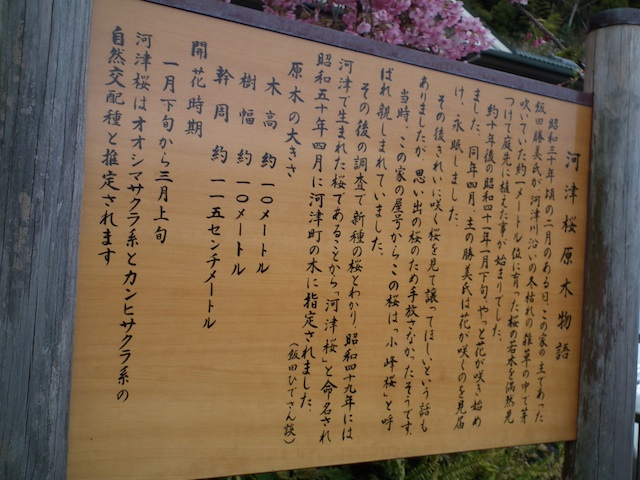 河津桜原木物語
昭和三十年頃の二月のある日、この家の主であった
飯田勝美氏が、河津川沿いの冬枯れの雑草の中で芽
吹いていた約一メートル位に育った桜の若木を偶然見
つけて庭先に植えた事が始まりでした。
約十年後の昭和四十一年一月下旬、やっと花が咲き始め
ました、同年四月、主の勝美氏は花が咲くのを見届
け、永眠しました。
その後きれいに咲く桜を見て譲ってほしいという話も
ありましたが、思い出の桜のため手放さなかったそうです。
当時、この家の屋号からこの桜は「小峰桜」と呼
ばれ親しまれていました。
その後の調査で新種の桜とわかり、昭和四十九年には
河津で生まれた桜であることから「河津桜」と命名され
昭和五十年四月に河津町の木に指定されました。
(飯田ひでさん談)
原木の大きさ
木高 約 一〇メートル
樹幅 約 一〇メートル
幹周 約 一一五センチメートル
開花時期
一月下旬から三月上旬
河津桜はオオシマザクラ系とカンヒザクラ系の
自然交配種と推定されます